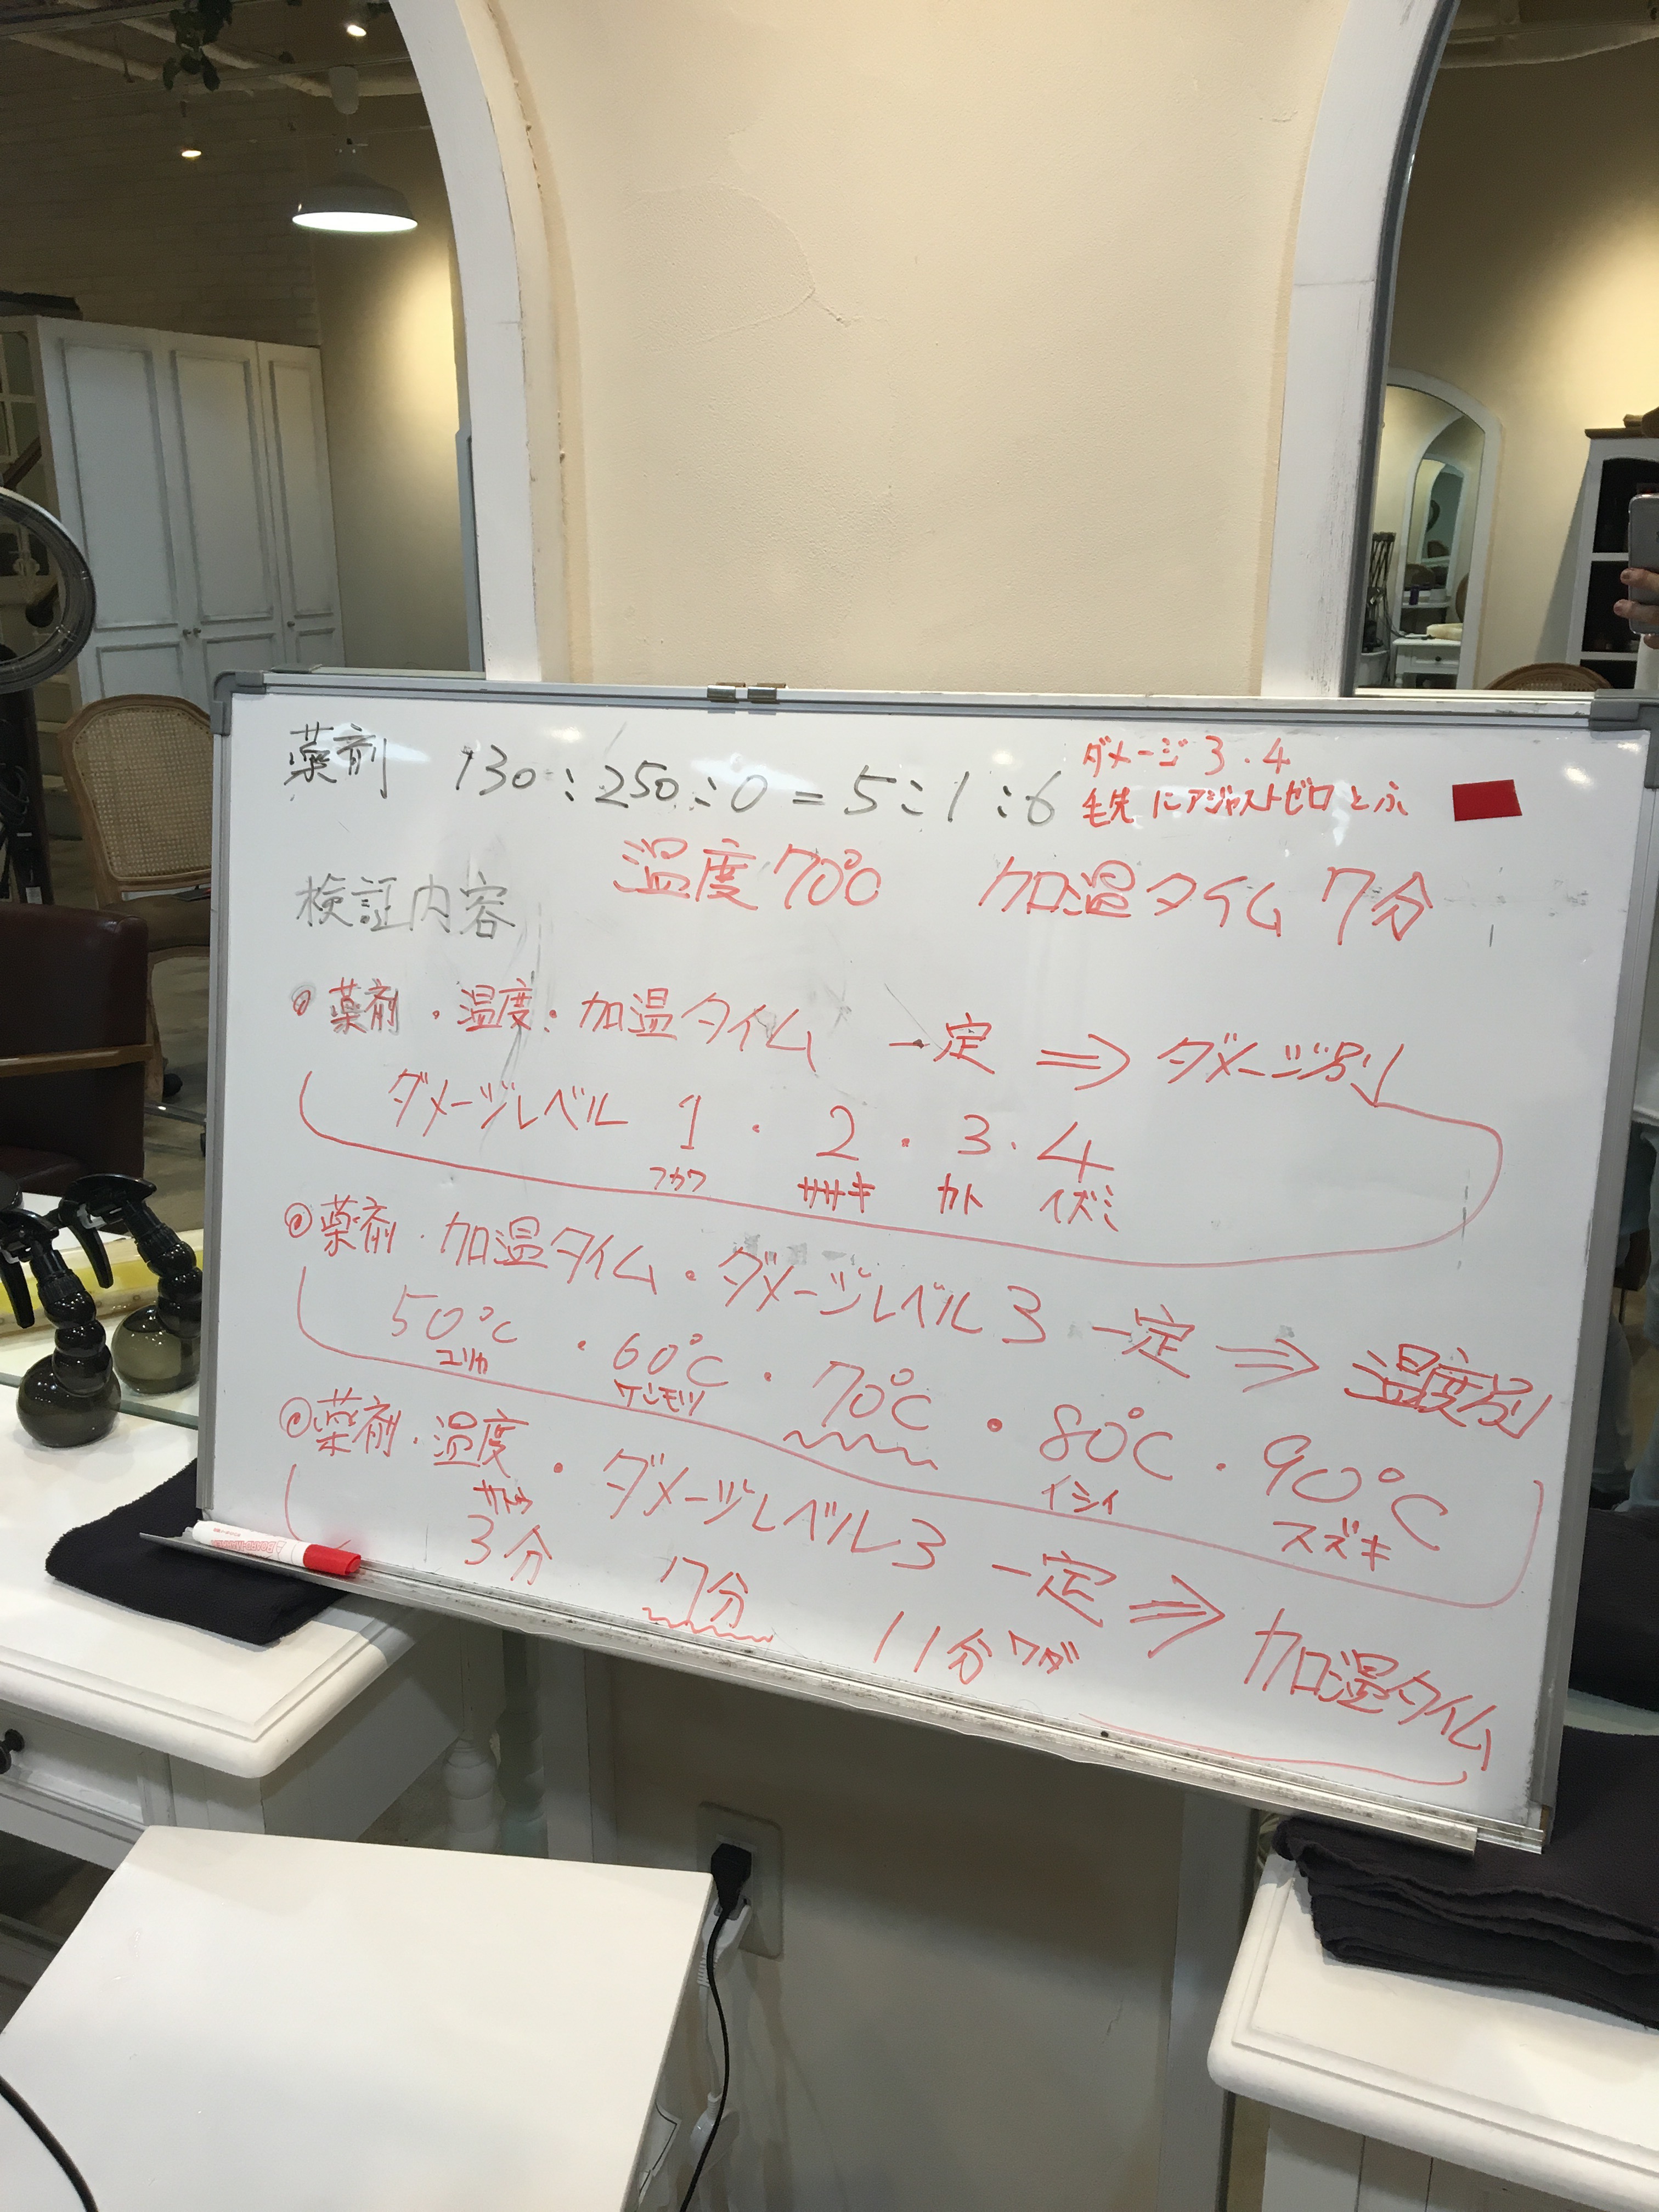 薬剤 130:250:0=5:1:6 ダメージ3・4
毛先にアジャストゼロとふ
温度70℃ 加温タイム7分
検証内容
薬剤・温度・加温タイム 一定 ⇒ ダメージ別
ダメージレベル 1・2・3・4
フカワ ササキ カト イズミ
薬剤・加温タイム・ダメージレベル3 一定 ⇒ 温度別
50℃・60℃・70℃・80℃・90℃
ユリカ ケンモツ イシイ スズキ
薬剤・温度・ダメージレベル3 一定 ⇒ 加温タイム
3分 7分 11分 ワダ